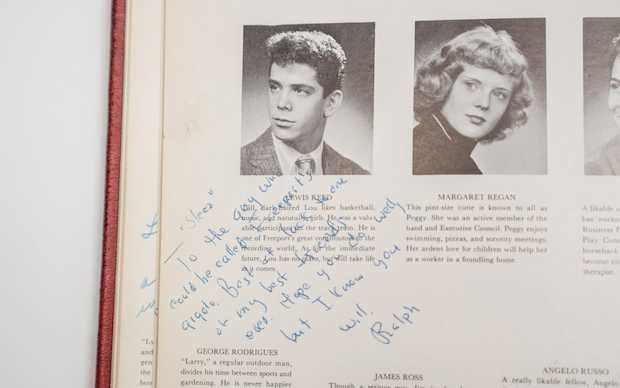 LEWIS REED
Tall, dark-haired Lou likes basketball,
music, and naturally, girls. He was a valu-
able participant on the track team. He is
one of Freeport's great contributors to the
recording world. As for the immediate
future, Lou has no plans, but will take life
as it comes.
MARGARET REGAN
This pint-size cutie is known to all as
Peggy. She was an active member of the
band and Executive Council. Peggy enjoys
swimming, pizzas, and sorority meetings.
Her ardent love for children will help her
as a worker in a foundling home.
A likable
has worke
Business F
Play Com
horseback
become
therapist.
To the guy who
could be called
gigolo. Best of luck to one
of my best
ones. Hope you do well,
but I know you
will.
Ralph
GEORGE RODRIGUES
"Larry," a regular outdoor man,
divides his time between sports and
gardening. He is never happier
JAMES ROSS
ANGELO RUSSO
A really likable fellow, Angelo